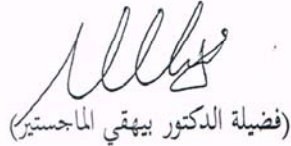 (فضيلة الدكتور بيهقي الماجستير)